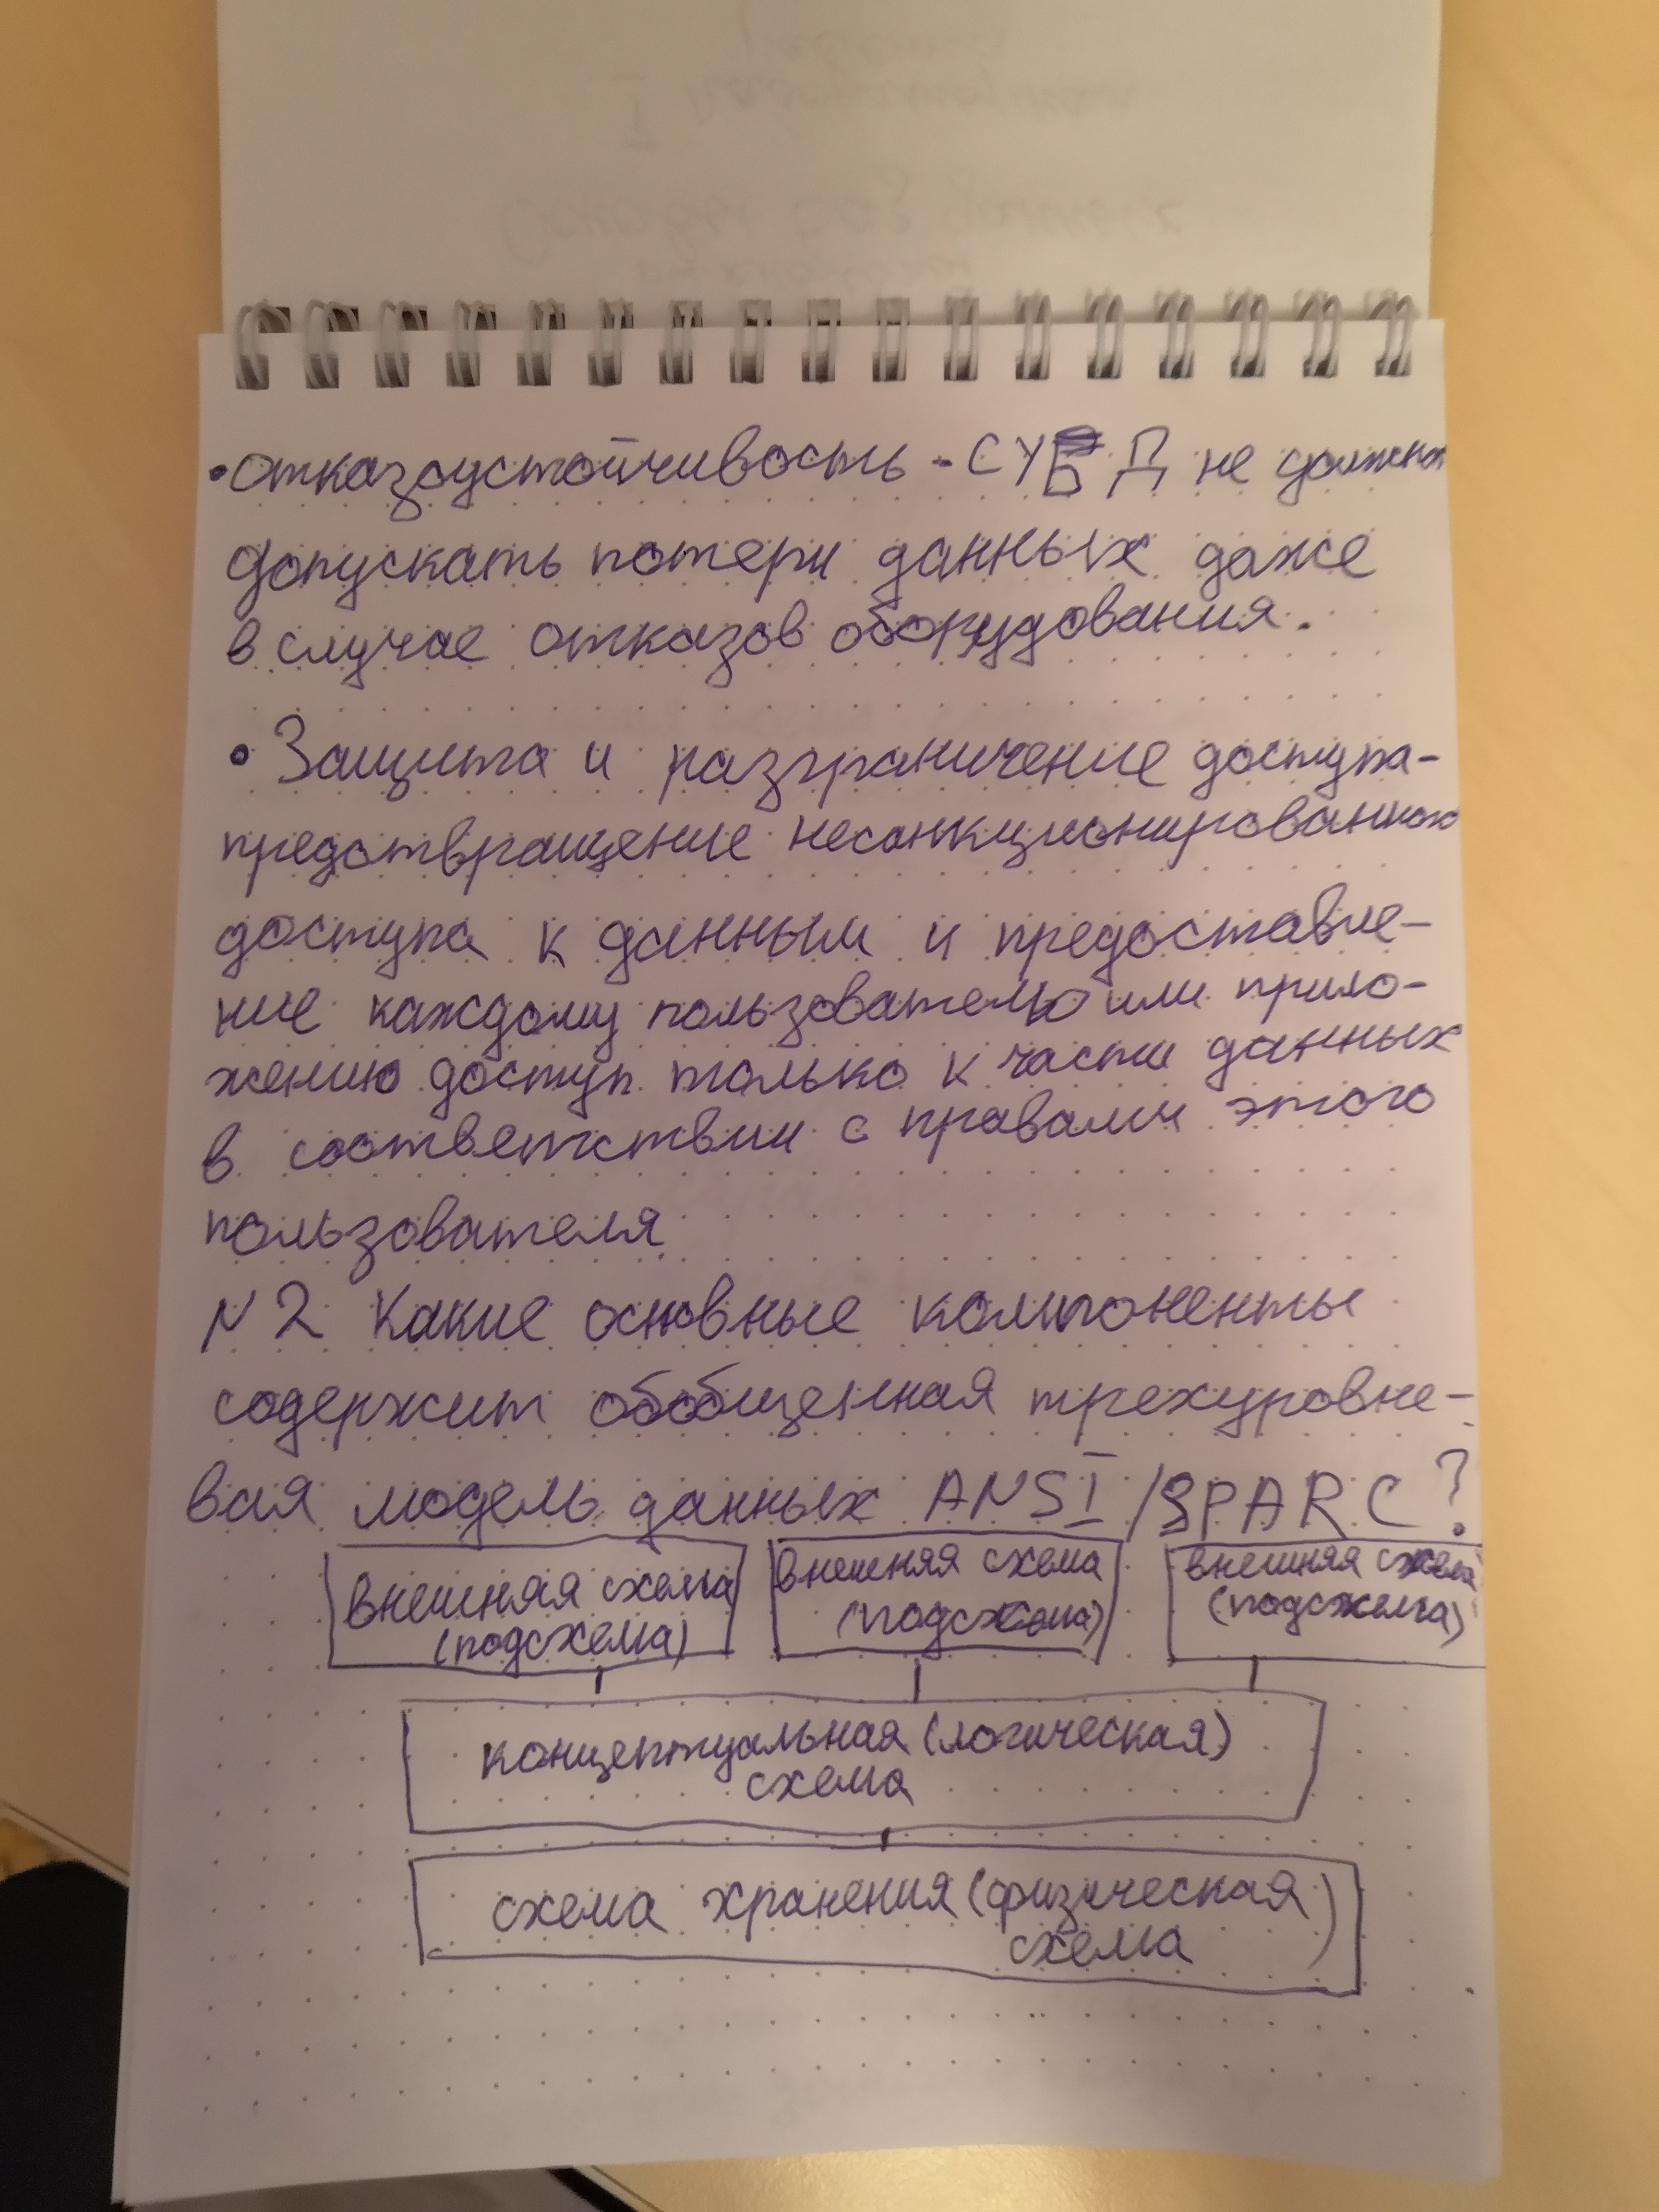 • отказоустойчивость - СУБД не должна
допускать потери данных даже
в случае отказов оборудования.
• Защита и разграничение доступа-
предотвращение несанкционированного
доступа к данным и предоставле-
ние каждому пользователю или прило-
жению доступ только к части данных
в соответствии с правами этого
пользователя.
N 2 Какие основные компоненты
содержит обобщенная трехуровне-
вая модель данных ANSI/SPARC?
внешняя схема
(подсхема)
внешняя схема
(подсхема)
внешняя схема
(подсхема)
концептуальная (логическая)
схема
схема хранения (физическая
схема)